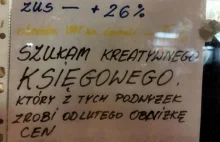 ZUS — +26%
SZUKAM KREATYWNEGO
KSIĘGOWEGO,
KTÓRY Z TYCH PODWYŻEK
ZROBI OD LUTEGO OBNIŻKĘ
CEN